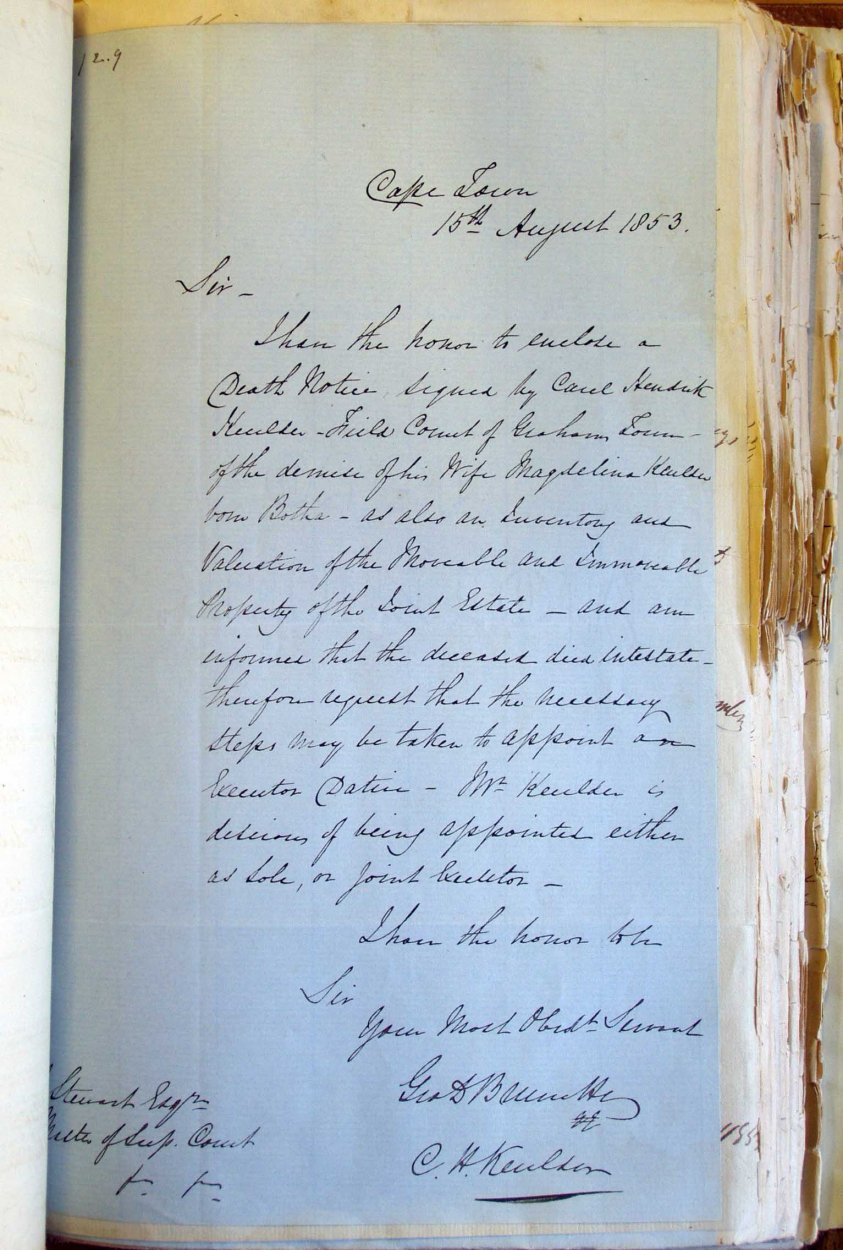 129
Cape Town
15th August 1853.
Sir –
I have the honor to enclose a
Death Notice, signed by Carel Hendrik
Keulder – Field Cornet of Grahams Town –
of the demise of his Wife Magdelina Keulder
born Botha – as also an Inventory and
Valuation of the Moveable and Immoveable
Property of the Joint Estate – and am
informed that the deceased died intestate –
therefore request that the necessary
steps may be taken to appoint an
Executor Dative – Mr Keulder is
desirous of being appointed either
as Sole, or joint Executor –
I have the honor to be
Sir
Your Most Obedt Servant
Geo D
C. H. Keulder
Stewart Esqre
of Sup. Court